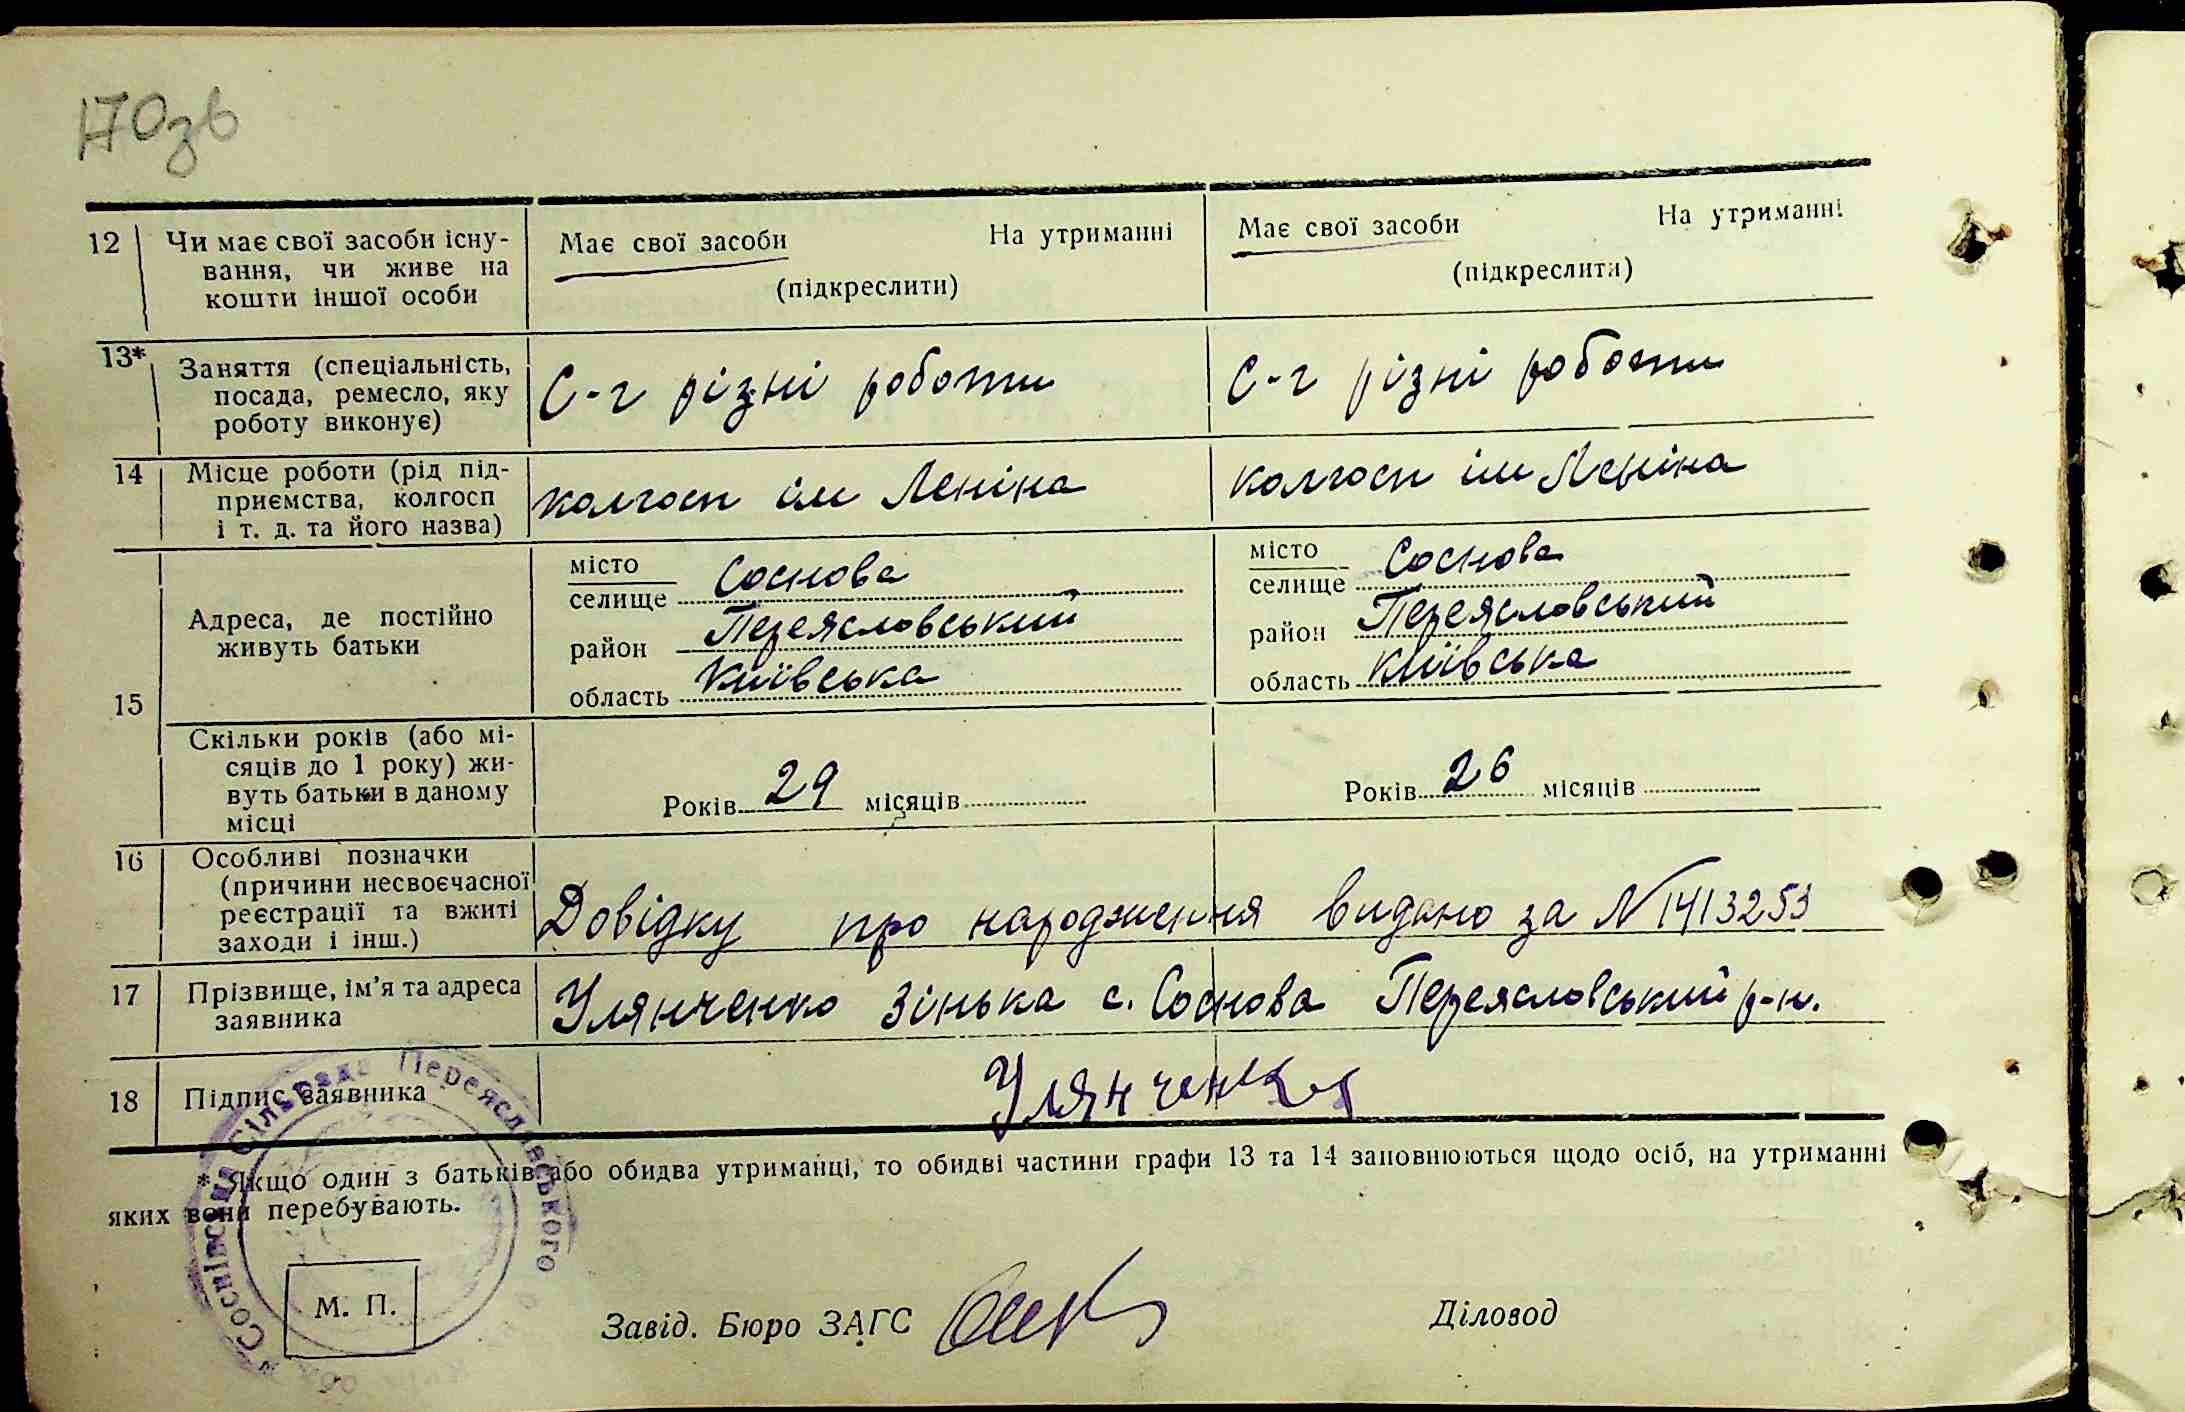 170зв
12 Чи має свої засоби існу- Має свої засоби На утриманні Має свої засоби На утриманні
вання, чи живе на (підкреслити) (підкреслити)
кошти іншої особи
13* Заняття (спеціальність,
посада, ремесло, яку С-г різні роботи С-г різні роботи
роботу виконує)
14 Місце роботи (рід під-
приємства, колгосп колгосп ім Леніна колгосп ім Леніна
і т. д. та його назва)
15 Адреса, де постійно
живуть батьки
місто
селище Соснова
район Переясловський
область Київська
місто
селище Соснова
район Переясловський
область Київська
Скільки років (або мі-
сяців до 1 року) жи-
вуть батьки в даному
місці
Років 29 місяців Років 26 місяців
16 Особливі позначки
(причини несвоєчасної
реєстрації та вжиті
заходи і інш.)
Довідку про народження видано за N 1413253
17 Прізвище, ім'я та адреса
заявника
Улянченко Зінька с. Соснова Переясловський р-н.
18 Підпис заявника Улянченко
* Якщо один з батьків або обидва утриманці, то обидві частини графи 13 та 14 заповнюються щодо осіб, на утриманні
яких вони перебувають.
Соснівська Сільрада Переяслівського
М. П.
Завід. Бюро ЗАГС Діловод